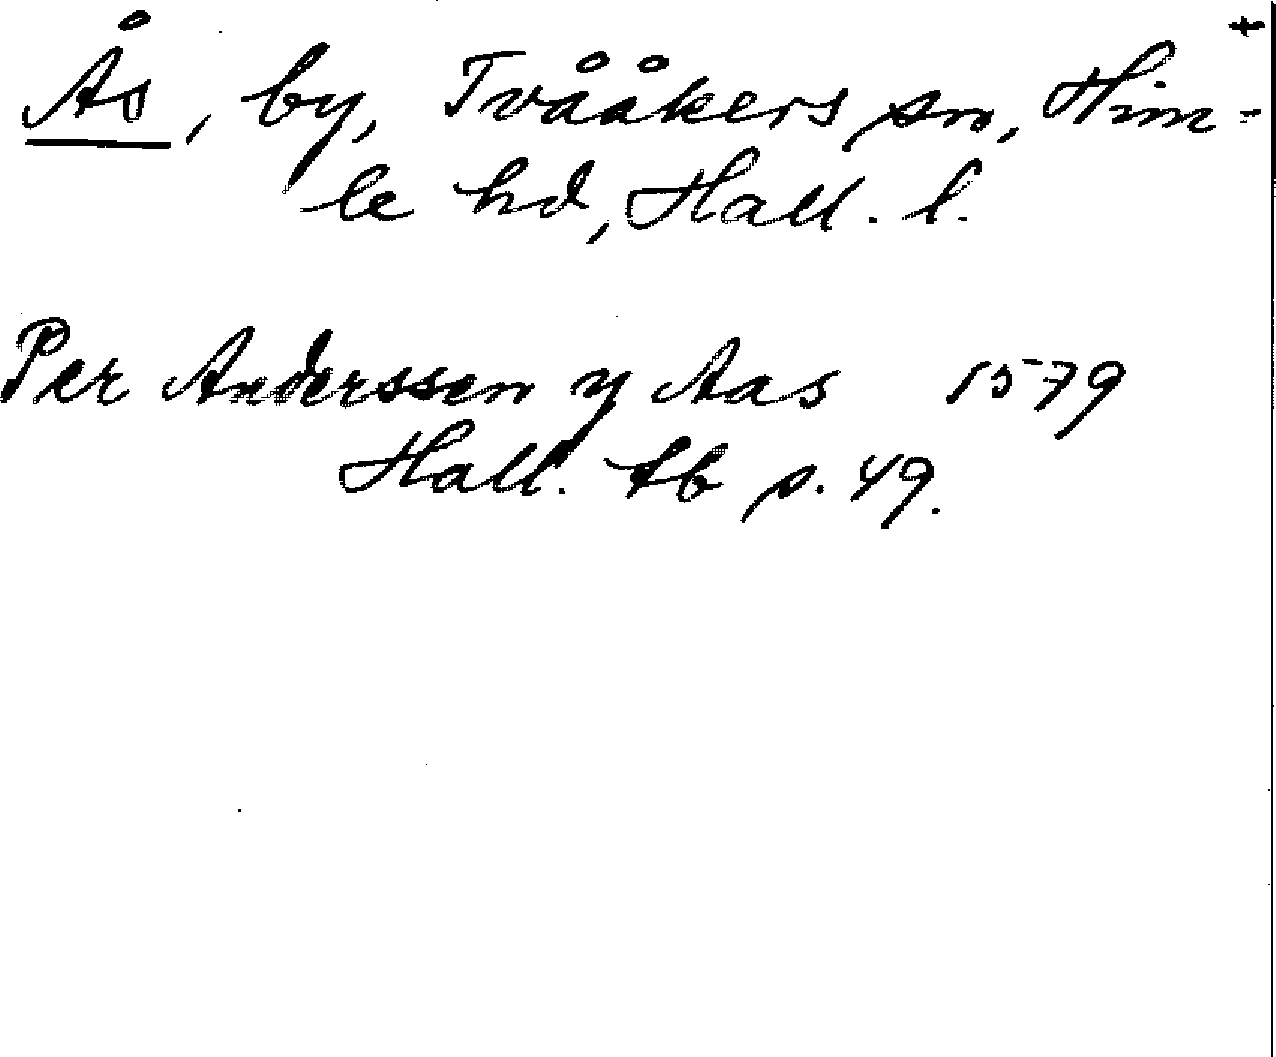 Ås, by, Tvååkers sn, Him-
le hd, Hall. l.
Per Anderssen y Aas 1579
Hall. tb p. 49.